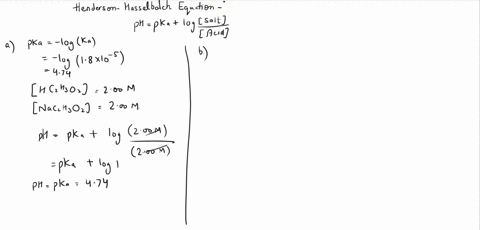 Henderson-Hasselbalch Equation :-
pH = pKa + log [Salt]/[Acid]
a) pKa = -log (Ka)
= -log (1.8×10⁻⁵)
= 4.74
[HC₂H₃O₂] = 2.00 M
[NaC₂H₃O₂] = 2.00 M
pH = pKa + log (2.00M)/(2.00M)
= pKa + log 1
pH = pKa = 4.74
b)